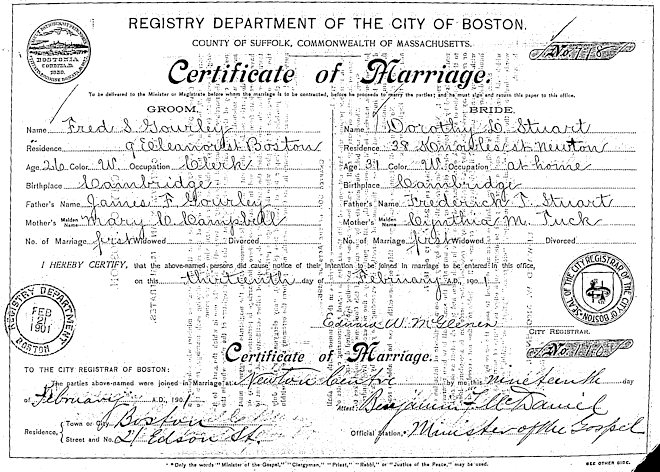 REGISTRY DEPARTMENT OF THE CITY OF BOSTON.
COUNTY OF SUFFOLK, COMMONWEALTH OF MASSACHUSETTS.
No. 718
BOSTONIA CONDITA A.D. 1630.
Certificate of Marriage.
To be delivered to the Minister or Magistrate before whom the marriage is to be contracted, before he proceeds to marry the parties; and he must sign and return this paper to this office.
GROOM. BRIDE.
Name Fred S Gourley Name Dorothy D Stuart
Residence 9 Gleamont Boston Residence 38 Knowles st Newton
Age 26 Color W. Occupation Clerk Age 31 Color W. Occupation at home
Birthplace Cambridge Birthplace Cambridge
Father's Name James F Gourley Father's Name Frederick T. Stuart
Mother's Maiden Name Mary C Campbell Mother's Maiden Name Cynthia M. Tuck
No. of Marriage first Widowed Divorced No. of Marriage first Widowed Divorced
I HEREBY CERTIFY, that the above-named persons did cause notice of their intention to be joined in marriage to be entered in this office,
on this thirteenth day of February A.D., 1901
SEAL OF THE CITY REGISTRAR OF THE CITY OF BOSTON
REGISTRY DEPARTMENT
FEB
21
1901
BOSTON
Edward W. McGlenen
CITY REGISTRAR.
Certificate of Marriage.
No.
TO THE CITY REGISTRAR OF BOSTON:
The parties above-named were joined in Marriage at Newton Centre by me this nineteenth day
of February A.D., 1901 Attest: Benjamin F. McDaniel
Residence, Town or City Boston
Street and No. 21 Edson St. Official Station,* Minister of the Gospel
* "Only the words "Minister of the Gospel," "Clergyman," "Priest," "Rabbi," or "Justice of the Peace," may be used.
SEE OTHER SIDE.